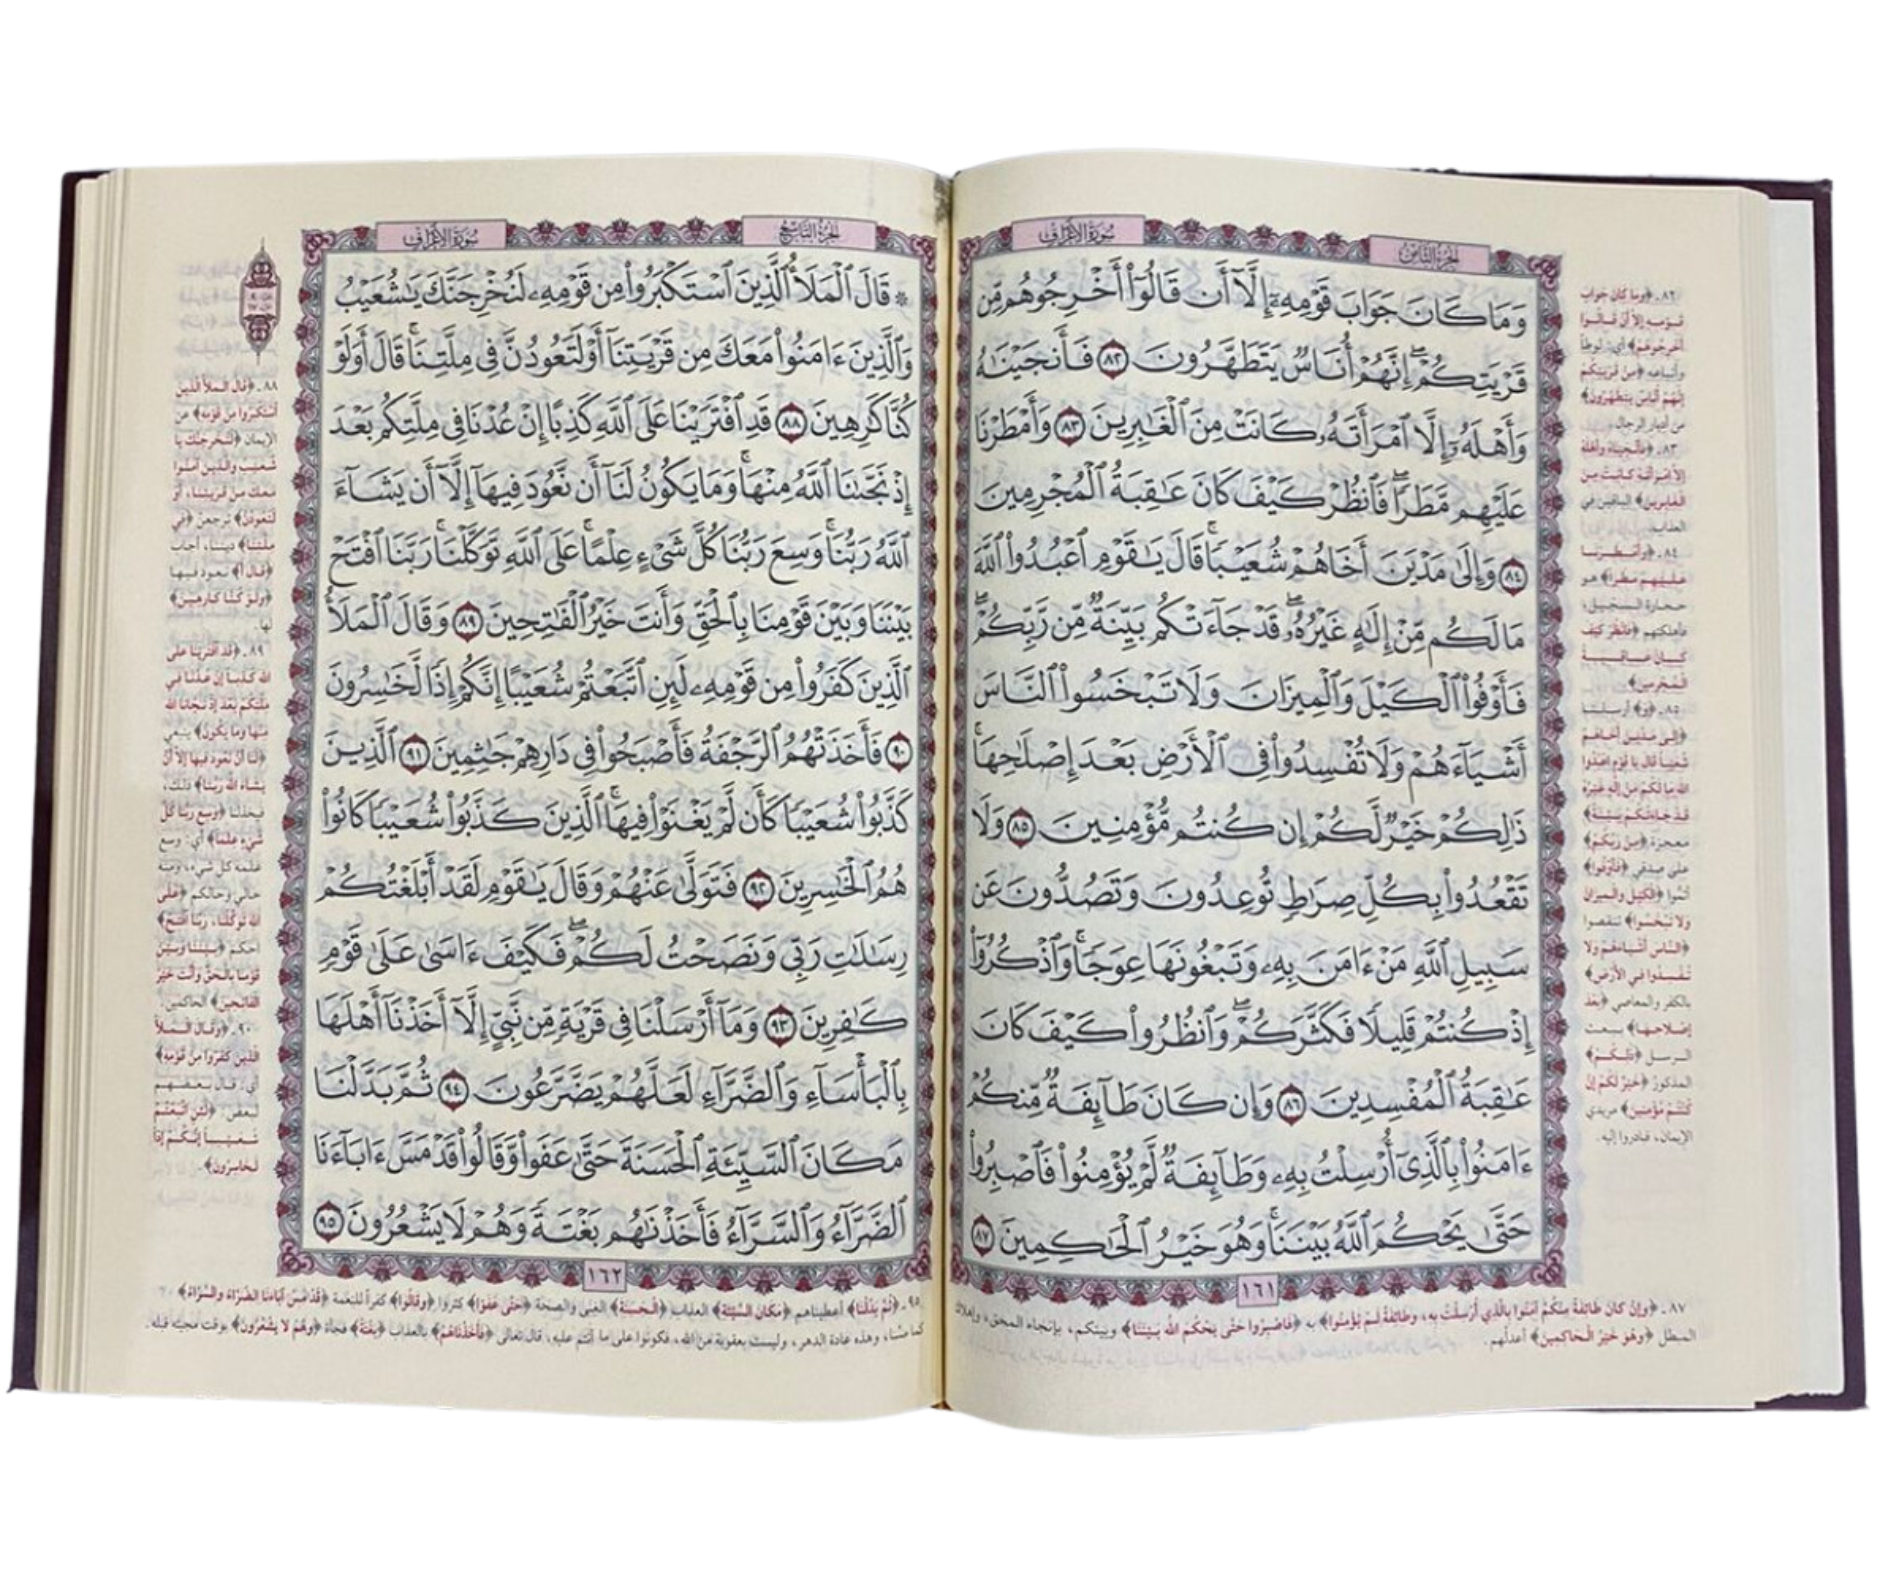 الجزء الثامن
سورة الأعراف
وَمَا كَانَ جَوَابَ قَوْمِهِۦٓ إِلَّآ أَن قَالُوٓا۟ أَخْرِجُوهُم مِّن
قَرْيَتِكُمْ ۖ إِنَّهُمْ أُنَاسٌ يَتَطَهَّرُونَ ٨٢ فَأَنجَيْنَٰهُ
وَأَهْلَهُۥٓ إِلَّا ٱمْرَأَتَهُۥ كَانَتْ مِنَ ٱلْغَٰبِرِينَ ٨٣ وَأَمْطَرْنَا
عَلَيْهِم مَّطَرًا ۖ فَٱنظُرْ كَيْفَ كَانَ عَٰقِبَةُ ٱلْمُجْرِمِينَ
٨٤ وَإِلَىٰ مَدْيَنَ أَخَاهُمْ شُعَيْبًا ۗ قَالَ يَٰقَوْمِ ٱعْبُدُوا۟ ٱللَّهَ
مَا لَكُم مِّنْ إِلَٰهٍ غَيْرُهُۥ ۖ قَدْ جَآءَتْكُم بَيِّنَةٌ مِّن رَّبِّكُمْ ۖ
فَأَوْفُوا۟ ٱلْكَيْلَ وَٱلْمِيزَانَ وَلَا تَبْخَسُوا۟ ٱلنَّاسَ
أَشْيَآءَهُمْ وَلَا تُفْسِدُوا۟ فِى ٱلْأَرْضِ بَعْدَ إِصْلَٰحِهَا ۚ
ذَٰلِكُمْ خَيْرٌ لَّكُمْ إِن كُنتُم مُّؤْمِنِينَ ٨٥ وَلَا
تَقْعُدُوا۟ بِكُلِّ صِرَٰطٍ تُوعِدُونَ وَتَصُدُّونَ عَن
سَبِيلِ ٱللَّهِ مَنْ ءَامَنَ بِهِۦ وَتَبْغُونَهَا عِوَجًا ۚ وَٱذْكُرُوٓا۟
إِذْ كُنتُمْ قَلِيلًا فَكَثَّرَكُمْ ۖ وَٱنظُرُوا۟ كَيْفَ كَانَ
عَٰقِبَةُ ٱلْمُفْسِدِينَ ٨٦ وَإِن كَانَ طَآئِفَةٌ مِّنكُمْ
ءَامَنُوا۟ بِٱلَّذِىٓ أُرْسِلْتُ بِهِۦ وَطَآئِفَةٌ لَّمْ يُؤْمِنُوا۟ فَٱصْبِرُوا۟
حَتَّىٰ يَحْكُمَ ٱللَّهُ بَيْنَنَا ۚ وَهُوَ خَيْرُ ٱلْحَٰكِمِينَ ٨٧
١٦١
٨٢ ـ ﴿وما كان جواب
قومه إلا أن قالوا
أخرجوهم﴾ أي: لوطاً
وأتباعه ﴿من قريتكم
إنهم أناس يتطهرون﴾
من أدبار الرجال.
٨٣ ـ ﴿فأنجيناه وأهله
إلا امرأته كانت من
الغابرين﴾ الباقين في
العذاب.
٨٤ ـ ﴿وأمطرنا
عليهم مطراً﴾ هو
حجارة السجيل،
فأهلكتهم ﴿فانظر كيف
كان عاقبة
المجرمين﴾.
٨٥ ـ ﴿و﴾ أرسلنا
﴿إلى مدين أخاهم
شعيباً قال يا قوم اعبدوا
الله ما لكم من إله غيره
قد جاءتكم بينة﴾
معجزة ﴿من ربكم﴾
على صدقي ﴿فأوفوا﴾
أتموا ﴿الكيل والميزان
ولا تبخسوا﴾ تنقصوا
﴿الناس أشياءهم ولا
تفسدوا في الأرض﴾
بالكفر والمعاصي ﴿بعد
إصلاحها﴾ ببعث
الرسل ﴿ذلكم﴾
المذكور ﴿خير لكم إن
كنتم مؤمنين﴾ مريدي
الإيمان، فبادروا إليه.
٨٧ ـ ﴿وإن كان طائفة منكم آمنوا بالذي أرسلت به، وطائفة لم يؤمنوا﴾ به ﴿فاصبروا حتى يحكم الله بيننا﴾ وبينكم، بإنجاء المحق، وإهلاك
المبطل ﴿وهو خير الحاكمين﴾ أعدلهم.
الجزء التاسع
سورة الأعراف
۞ قَالَ ٱلْمَلَأُ ٱلَّذِينَ ٱسْتَكْبَرُوا۟ مِن قَوْمِهِۦ لَنُخْرِجَنَّكَ يَٰشُعَيْبُ
وَٱلَّذِينَ ءَامَنُوا۟ مَعَكَ مِن قَرْيَتِنَآ أَوْ لَتَعُودُنَّ فِى مِلَّتِنَا ۚ قَالَ أَوَلَوْ
كُنَّا كَٰرِهِينَ ٨٨ قَدِ ٱفْتَرَيْنَا عَلَى ٱللَّهِ كَذِبًا إِنْ عُدْنَا فِى مِلَّتِكُم بَعْدَ
إِذْ نَجَّىٰنَا ٱللَّهُ مِنْهَا ۚ وَمَا يَكُونُ لَنَآ أَن نَّعُودَ فِيهَآ إِلَّآ أَن يَشَآءَ
ٱللَّهُ رَبُّنَا ۚ وَسِعَ رَبُّنَا كُلَّ شَىْءٍ عِلْمًا ۚ عَلَى ٱللَّهِ تَوَكَّلْنَا ۚ رَبَّنَا ٱفْتَحْ
بَيْنَنَا وَبَيْنَ قَوْمِنَا بِٱلْحَقِّ وَأَنتَ خَيْرُ ٱلْفَٰتِحِينَ ٨٩ وَقَالَ ٱلْمَلَأُ
ٱلَّذِينَ كَفَرُوا۟ مِن قَوْمِهِۦ لَئِنِ ٱتَّبَعْتُمْ شُعَيْبًا إِنَّكُمْ إِذًا لَّخَٰسِرُونَ
٩٠ فَأَخَذَتْهُمُ ٱلرَّجْفَةُ فَأَصْبَحُوا۟ فِى دَارِهِمْ جَٰثِمِينَ ٩١ ٱلَّذِينَ
كَذَّبُوا۟ شُعَيْبًا كَأَن لَّمْ يَغْنَوْا۟ فِيهَا ۚ ٱلَّذِينَ كَذَّبُوا۟ شُعَيْبًا كَانُوا۟
هُمُ ٱلْخَٰسِرِينَ ٩٢ فَتَوَلَّىٰ عَنْهُمْ وَقَالَ يَٰقَوْمِ لَقَدْ أَبْلَغْتُكُمْ
رِسَٰلَٰتِ رَبِّى وَنَصَحْتُ لَكُمْ ۖ فَكَيْفَ ءَاسَىٰ عَلَىٰ قَوْمٍ
كَٰفِرِينَ ٩٣ وَمَآ أَرْسَلْنَا فِى قَرْيَةٍ مِّن نَّبِىٍّ إِلَّآ أَخَذْنَآ أَهْلَهَا
بِٱلْبَأْسَآءِ وَٱلضَّرَّآءِ لَعَلَّهُمْ يَضَّرَّعُونَ ٩٤ ثُمَّ بَدَّلْنَا
مَكَانَ ٱلسَّيِّئَةِ ٱلْحَسَنَةَ حَتَّىٰ عَفَوا۟ وَّقَالُوا۟ قَدْ مَسَّ ءَابَآءَنَا
ٱلضَّرَّآءُ وَٱلسَّرَّآءُ فَأَخَذْنَٰهُم بَغْتَةً وَهُمْ لَا يَشْعُرُونَ ٩٥
١٦٢
٨٨ ـ ﴿قال الملأ الذين
استكبروا من قومه﴾ عن
الإيمان ﴿لنخرجنك يا
شعيب والذين آمنوا
معك من قريتنا، أو
لتعودن﴾ ترجعن ﴿في
ملتنا﴾ ديننا، أجاب
﴿قال أ﴾ نعود فيها
﴿ولو كنا كارهين﴾
لها.
٨٩ ـ ﴿قد افترينا على
الله كذباً إن عدنا في
ملتكم بعد إذ نجانا الله
منها وما يكون﴾ ينبغي
﴿لنا أن نعود فيها إلا أن
يشاء الله ربنا﴾ ذلك،
فيخذلنا ﴿وسع ربنا كل
شيء علماً﴾ أي: وسع
علمه كل شيء، ومنه
حالي وحالكم ﴿على
الله توكلنا، ربنا افتح﴾
احكم ﴿بيننا وبين
قومنا بالحق وأنت خير
الفاتحين﴾ الحاكمين.
٩٠ ـ ﴿وقال الملأ
الذين كفروا من قومه﴾
أي: قال بعضهم
لبعض: ﴿لئن اتبعتم
شعيباً إنكم إذاً
لخاسرون﴾.
٩٥ ـ ﴿ثم بدلنا﴾ أعطيناهم ﴿مكان السيئة﴾ العذاب ﴿الحسنة﴾ الغنى والصحة ﴿حتى عفوا﴾ كثروا ﴿وقالوا﴾ كفراً للنعمة ﴿قد مس آباءنا الضراء والسراء﴾
كما مسنا، وهذه عادة الدهر، وليست بعقوبة من الله، فكونوا على ما أنتم عليه، قال تعالى ﴿فأخذناهم﴾ بالعذاب ﴿بغتة﴾ فجأة ﴿وهم لا يشعرون﴾ بوقت مجيئه قبله.